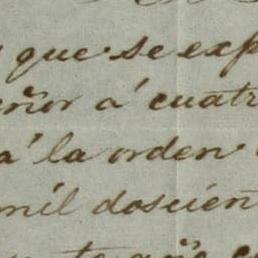 que se exp
eñor á cuatr
á la orden
mil doscien